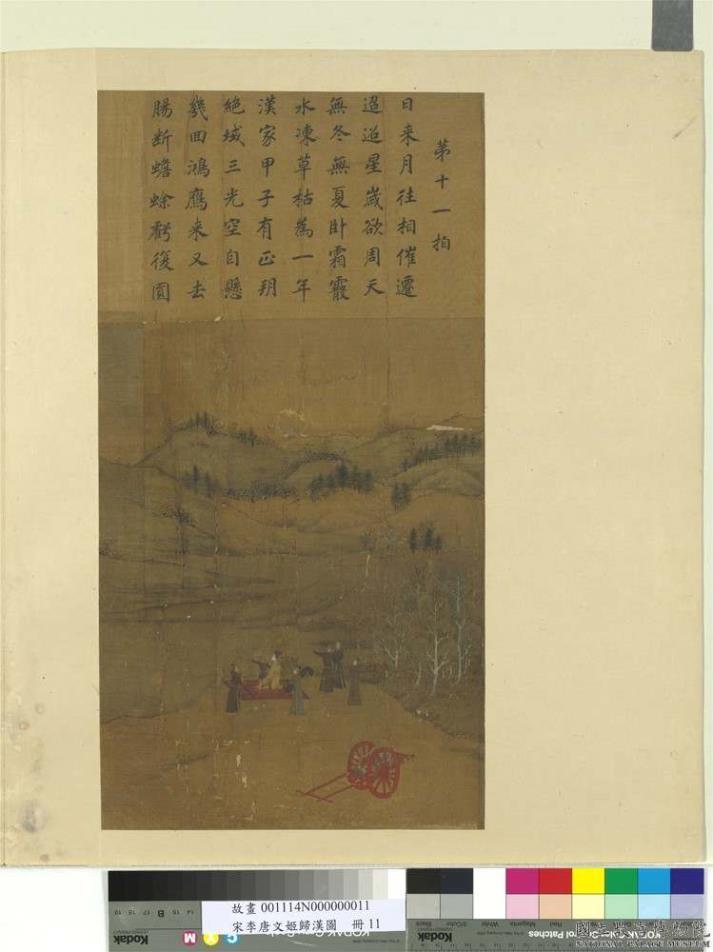 第十一拍
日来月往相催遷
迢迢星歲欲周天
無冬無夏卧霜霰
水凍草枯為一年
漢家甲子有正朔
絶域三光空自懸
幾回鴻鴈来又去
腸斷蟾蜍虧復圓
故畫 001114N000000011
宋李唐文姬歸漢圖 冊 11
Kodak
Kodak
國立故宮博物院
NATIONAL PALACE MUSEUM